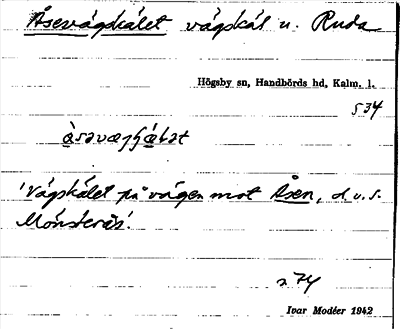 Åsevägskälet vägskäl u. Ruda
Högsby sn, Handbörds hd, Kalm. l.
S 34
'Vägskälet på vägen mot Åsen, d.v.s.
Mönsterås'.
Ivar Modéer 1942